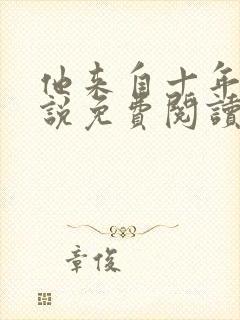 他来自十年
說免費閱讀
章俊